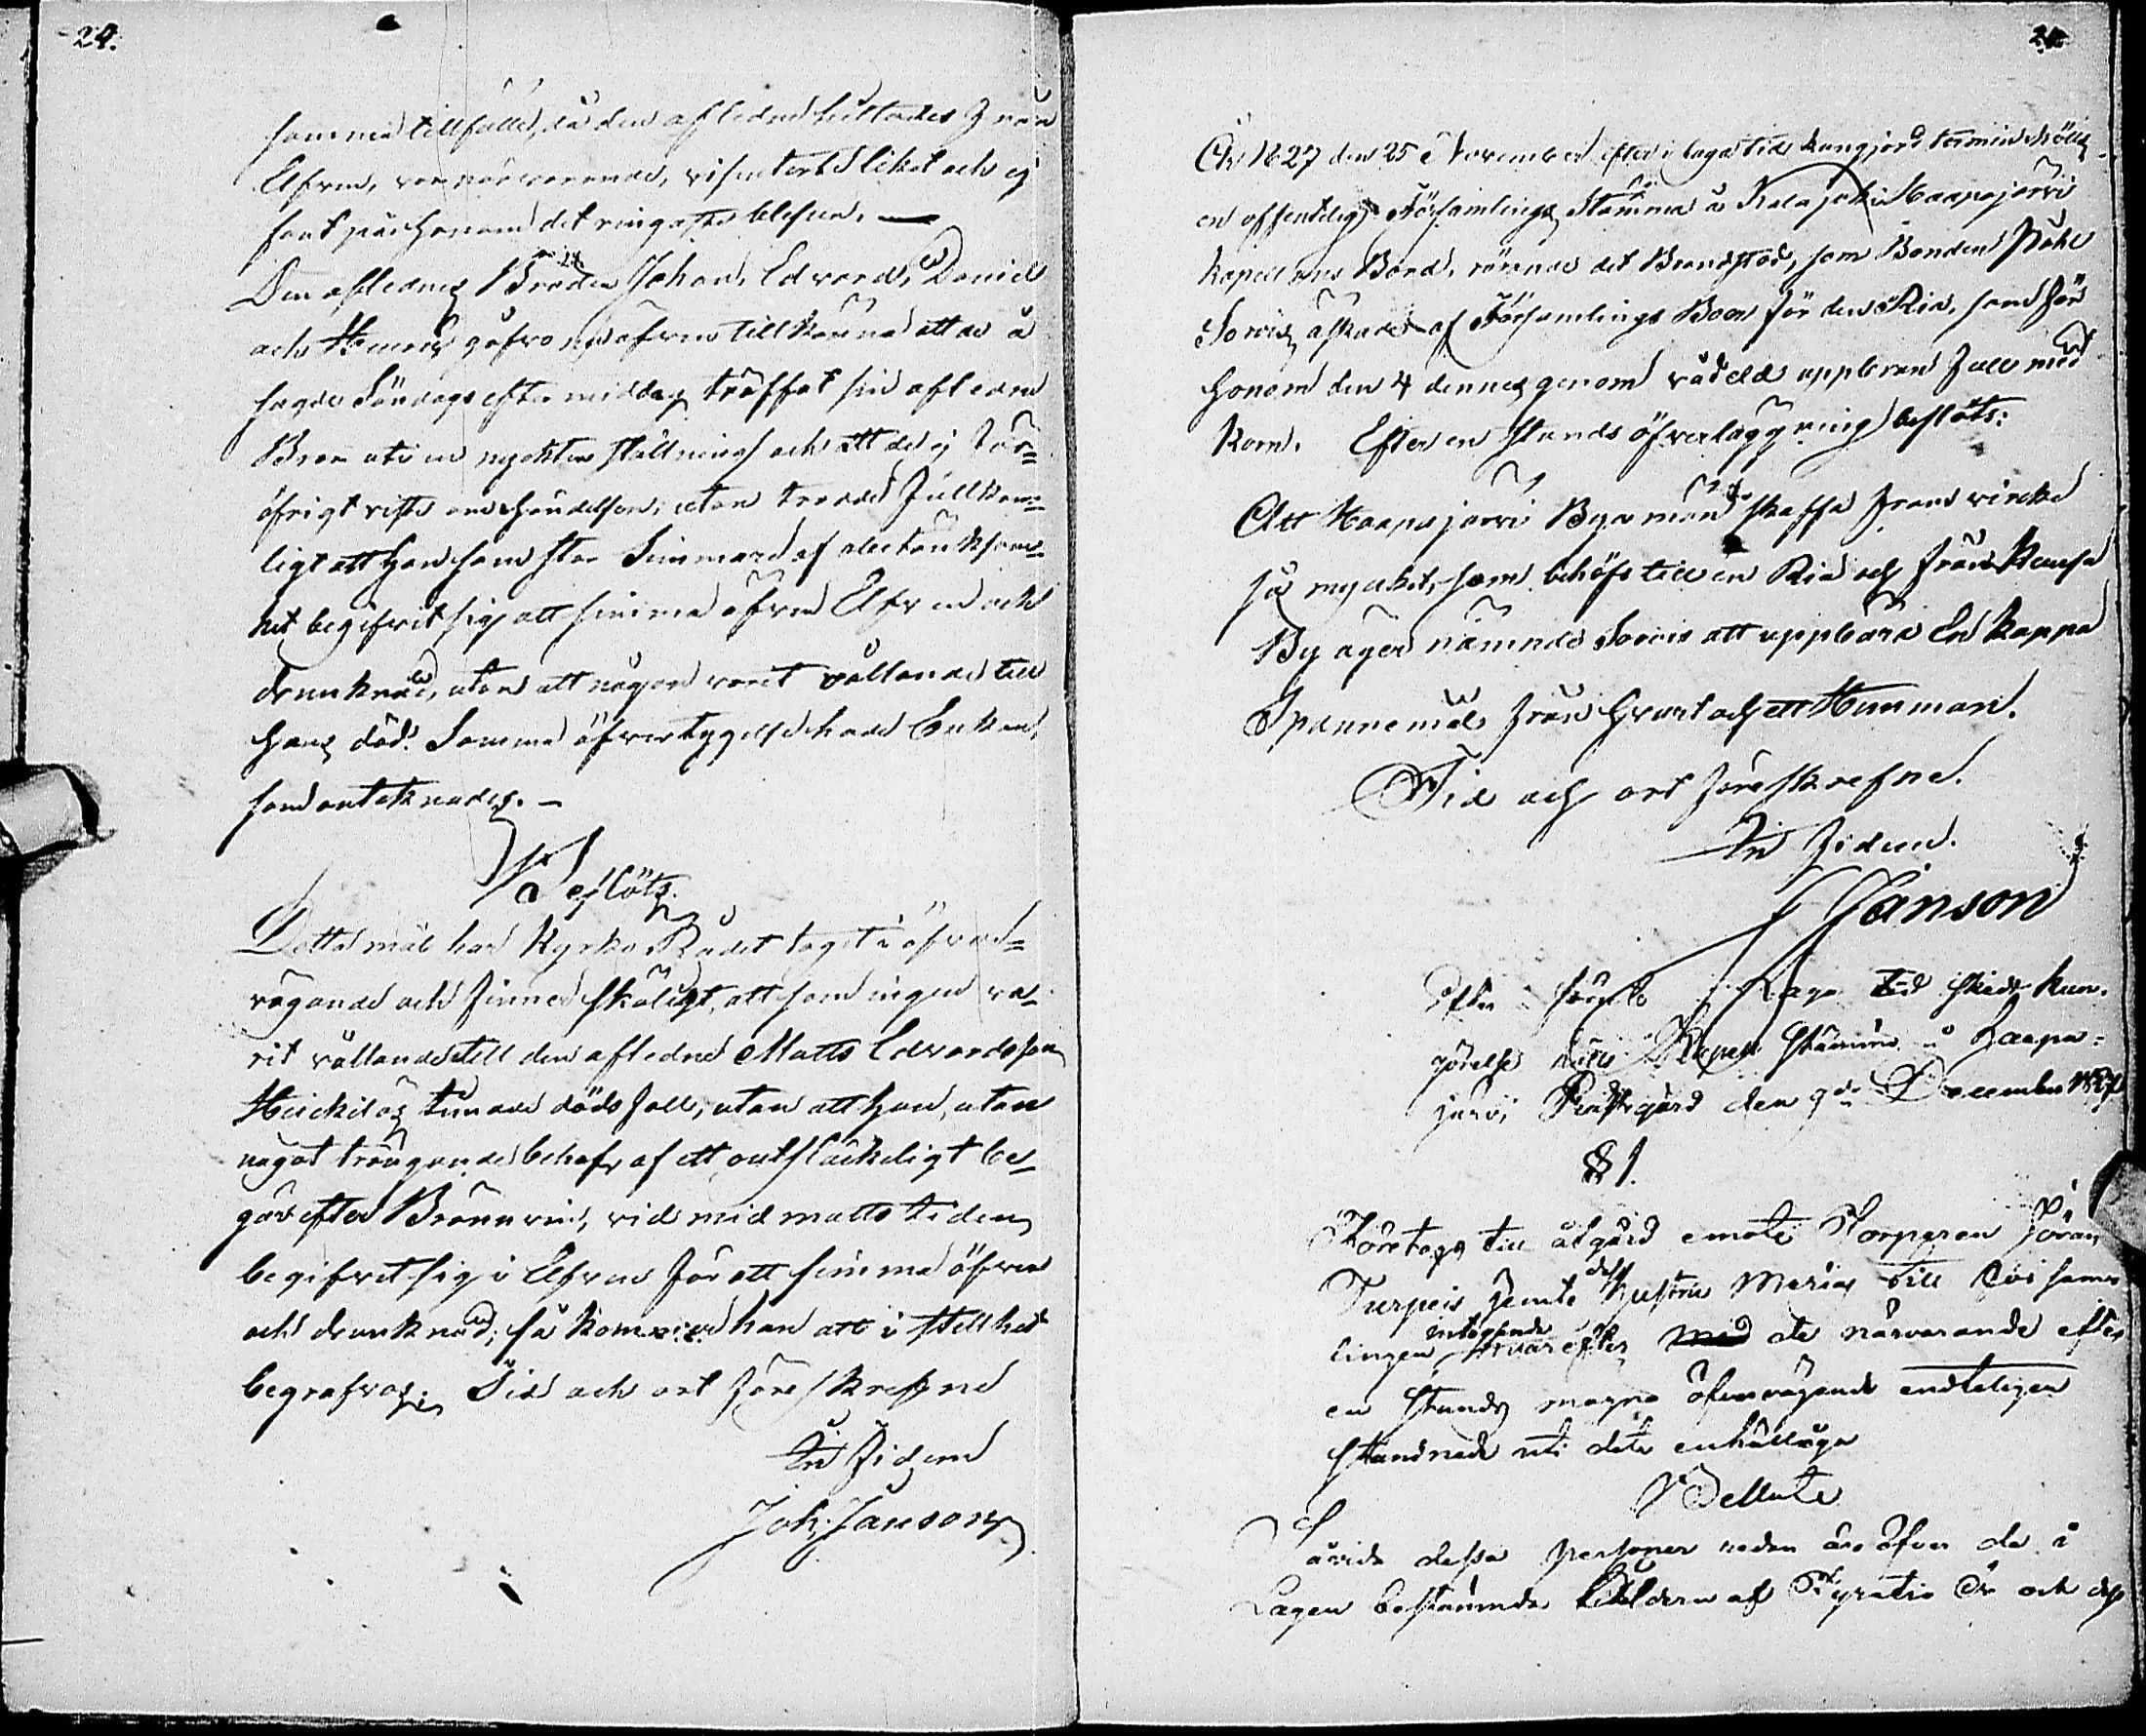 24.
samma tillfälle, då den aflednes hittades från
Elfven, var närvarande, visiterte liket och ej
fant på honom det ringaste blessur. —
Den aflednes Bröder Johan, Edvard, Daniel
och Henric gåfvo äfven tillkänna att de å
sagde Söndags eftermiddag träffat sin afledne
Bror uti en nyckter ställning och att de ej för=
öfrigt viste om händelsen, utan trodde fullkom=
ligt att han som stor Simmare af obetänksam=
het begifvit sig att simma öfver Elfven och
drunknad, utan att någon varit vållande till
hans död. Samma öfvertygelse hade Enkan,
som antecknades. —
Beslöts.
Detta mål har Kyrko Rådet tagit i öfver=
vägande och finner skäligt, att som ingen va=
rit vållande till den aflednes Matts Edvardsson
Heickilas timade dödsfall, utan att han, utan
något trängande behof, af ett outsläckeligt be=
gär efter Brännvin, vid midnatts tiden
begifvit sig i Elfven för att simma öfver
och drunknad; så kommer han att i stillhet
begrafvas. Tid och ort föreskrefne
In fidem
Joh: Janson
År 1827 den 25 November efter i laga tid kungjord termin hölls
en offentelig Församlings Stämma å Kalajoki Haapajärvi
Kapellans Bord, rörande det Brandstod, som Bonden Påhl
Sorvis äskade af Församlings Boer för den Ria, som för
honom den 4 dennes genom vådeld uppbran full med
Korn. Efter en stunds öfverläggning beslöts:
Att Haapajärvi Byamän skaffa fram virke
så mycket, som behöfs till en Ria och från Ransa
By äger nämnde Sorvis att uppbära En Kappa
Spannemål från hvart och ett Hemman.
Tid och ort föreskrefne.
In fidem.
J Janson
Efter förut i Laga tid skedd kun-
görelse hölls Stämma å Haapa-
järvi Prästgård den 9de December 1827
§ 1.
Företogs till åtgärd emot Torparen Göran
Turpeis jemte dess hustru Maria till
lingen hvarefter de närvarande efter
en stunds moget öfvervägande endteligen
stannade uti dete enhälliga
Beslute
Såvida dessa personer redan äro öfver de i
Lagen bestämda åldern af Fyratio År och dess